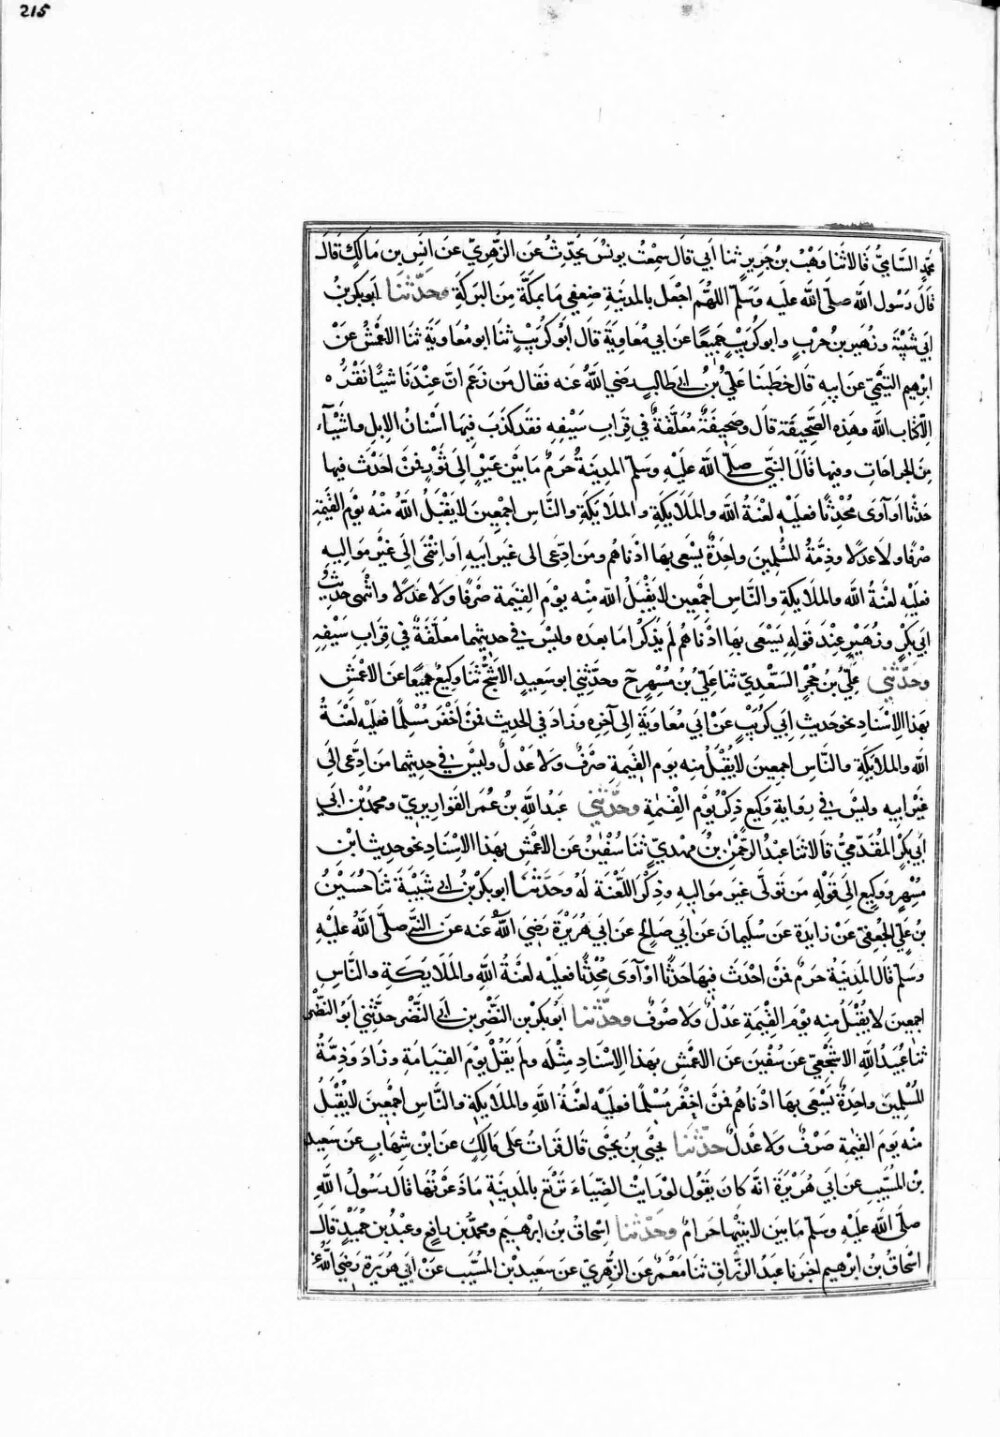 215
محمد السامي قالا ثنا وهب بن جرير ثنا أبي قال سمعت يونس يحدث عن الزهري عن انس بن مالك قال
قال رسول الله صلى الله عليه وسلم اللهم اجعل بالمدينة ضعفي ما بمكة من البركة وحدثنا ابو بكر بن
ابي شيبة وزهير بن حرب وابو كريب جميعا عن ابي معاوية قال ابو كريب ثنا ابو معاوية ثنا الاعمش عن
ابرهيم التيمي عن ابيه قال خطبنا علي بن ابي طالب رضي الله عنه فقال من زعم ان عندنا شيئا نقرؤه
الا كتاب الله وهذه الصحيفة قال وصحيفة معلقة في قراب سيفه فقد كذب فيها اسنان الابل واشياء
من الجراحات وفيها قال النبي صلى الله عليه وسلم المدينة حرم ما بين عير الى ثور فمن احدث فيها
حدثا او آوى محدثا فعليه لعنة الله والملايكة والملايكة والناس اجمعين لا يقبل الله منه يوم القيمة
صرفا ولا عدلا وذمة المسلمين واحدة يسعى بها ادناهم ومن ادعى الى غير ابيه او انتمى الى غير مواليه
فعليه لعنة الله والملايكة والناس اجمعين لا يقبل الله منه يوم القيمة صرفا ولا عدلا وانتهى حديث
ابي بكر وزهير عند قوله يسعى بها ادناهم لم يذكرا ما بعده وليس في حديثهما معلقة في قراب سيفه
وحدثني علي بن حجر السعدي ثنا علي بن مسهر ح وحدثني ابو سعيد الاشج ثنا وكيع جميعا عن الاعمش
بهذا الاسناد نحو حديث ابي كريب عن ابي معاوية الى آخره وزاد في الحديث فمن اخفر مسلما فعليه لعنة
الله والملايكة والناس اجمعين لا يقبل منه يوم القيمة صرف ولا عدل وليس في حديثهما من ادعى الى
غير ابيه وليس في رواية وكيع ذكر يوم القيمة وحدثني عبد الله بن عمر القواريري ومحمد بن ابي
ابي بكر المقدمي قالا ثنا عبد الرحمن بن مهدي ثنا سفين عن الاعمش بهذا الاسناد نحو حديث ابن
مسهر ووكيع الى قوله من تولى غير مواليه وذكر اللعنة له وحدثنا ابو بكر بن ابي شيبة ثنا حسين
بن علي الجعفي عن زايدة عن سليمان عن ابي صالح عن ابي هريرة رضي الله عنه عن النبي صلى الله عليه
وسلم قال المدينة حرم فمن احدث فيها حدثا او آوى محدثا فعليه لعنة الله والملايكة والناس
اجمعين لا يقبل منه يوم القيمة عدل ولا صرف وحدثنا ابو بكر بن النضر بن ابي النضر حدثني ابو النضر
ثنا عبيد الله الاشجعي عن سفين عن الاعمش بهذا الاسناد مثله ولم يقل يوم القيامة وزاد وذمة
المسلمين واحدة يسعى بها ادناهم فمن اخفر مسلما فعليه لعنة الله والملايكة والناس اجمعين لا يقبل
منه يوم القيمة صرف ولا عدل حدثنا يحيى بن يحيى قال قرات على مالك عن ابن شهاب عن سعيد
بن المسيب عن ابي هريرة انه كان يقول لو رايت الظباء ترتع بالمدينة ما ذعرتها قال رسول الله
صلى الله عليه وسلم ما بين لابتيها حرام وحدثنا اسحاق بن ابرهيم ومحمد بن رافع وعبد بن حميد قال
اسحاق بن ابرهيم اخبرنا عبد الرزاق ثنا معمر عن الزهري عن سعيد بن المسيب عن ابي هريرة رضي الله